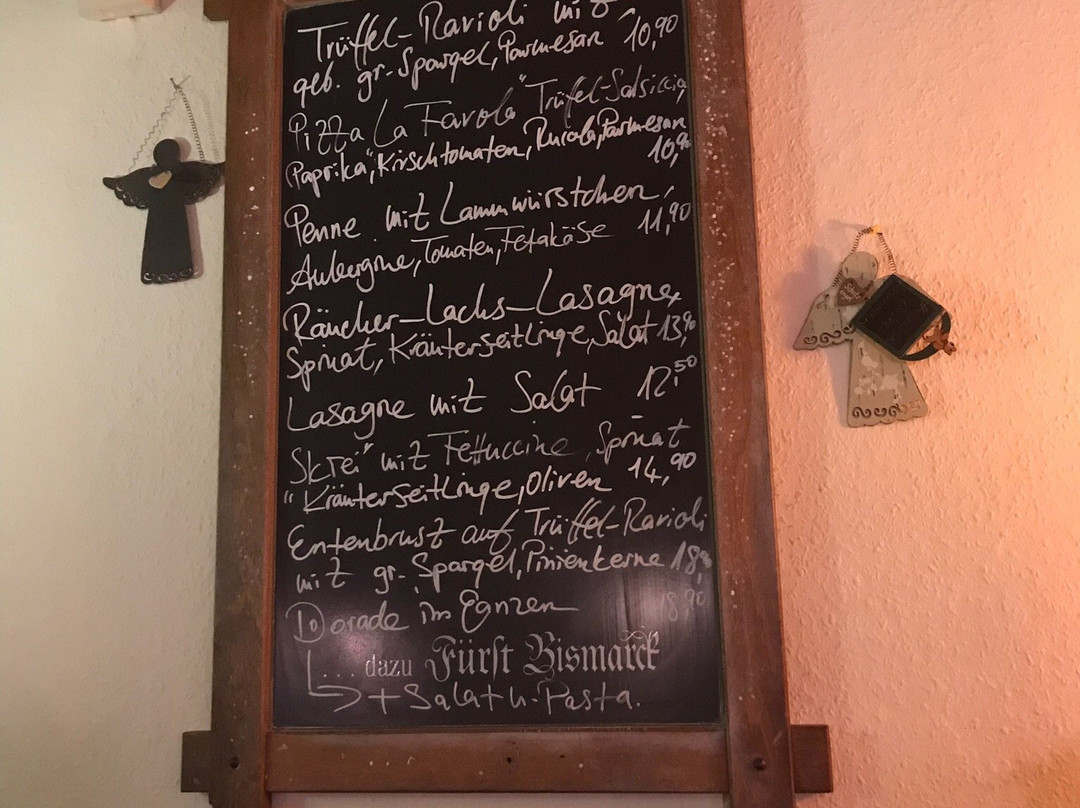 Trüffel-Ravioli mit
geb. gr. Spargel, Parmesan 10,90
Pizza La Favola "Trüfel-Salsiccia,
Paprika", Kirschtomaten, Rucola, Parmesan
10,90
Penne mit Lammwürstchen,
Aubergine, Tomaten, Fetakäse 11,90
Räucher-Lachs-Lasagne,
Spinat, Kräuterseitlinge, Salat 13,90
Lasagne mit Salat 12,50
Skrei" mit Fettuccine, Spinat
"Kräuterseitlinge, Oliven 14,90
Entenbrust auf Trüffel-Ravioli
mit gr. Spargel, Pinienkerne 18,90
Dorade im Ganzen 18,90
... dazu Fürst Bismarck
+ Salat u. Pasta.